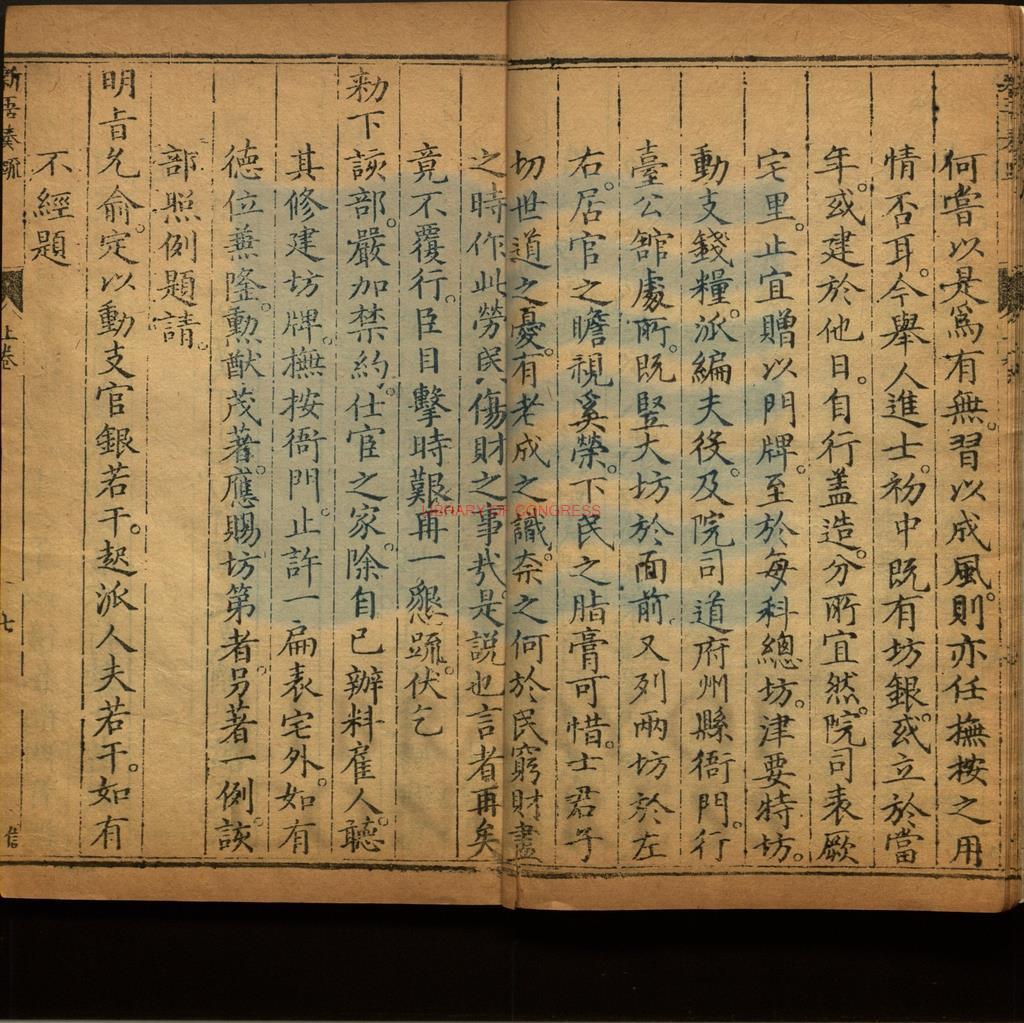 何嘗以是爲有無。習以成風。則亦任撫按之用
情否耳。今舉人進士。初中既有坊銀。或立於當
年。或建於他日。自行盖造。分所宜然。院司表厥
宅里。止宜贈以門牌。至於每科總坊。津要特坊。
動支錢糧。派編夫役。及院司道府州縣衙門。行
臺公館處所。既竪大坊於面前。又列兩坊於左
右。居官之瞻視奚榮。下民之脂膏可惜。士君子
切世道之憂。有老成之識。柰之何於民窮財盡
之時。作此勞民傷財之事哉。是説也言者再矣
竟不覆行。臣目擊時艱再一懇䟽。伏乞
勑下該部。嚴加禁約。仕宦之家。除自已辦料雇人。聽
其修建坊牌。撫按衙門。止許一扁表宅外。如有
德位兼隆。勳猷茂著。應賜坊第者。另著一例。該
部照例題請。
明旨允俞。定以動支官銀若干。起派人夫若干。如有
不經題
新吾奏疏
上卷
七
信
LIBRARY OF CONGRESS